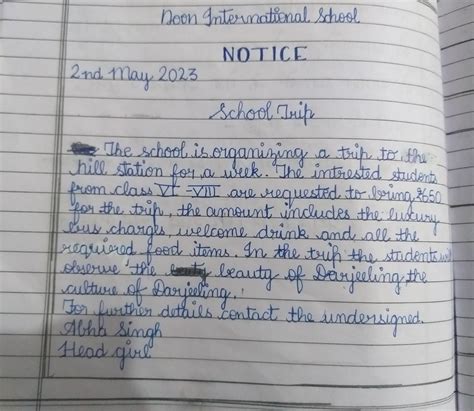 Doon International School
NOTICE
2nd May 2023
School Trip
The school is organizing a trip to the
hill station for a week. The intrested students
from class VI - VIII are requested to bring ₹650
for the trip, the amount includes the luxury
bus charges, welcome drink and all the
required food items. In the trip the students will
observe the beauty of Darjeeling, the
culture of Darjeeling.
For further details contact the undersigned.
Abha Singh
Head girl